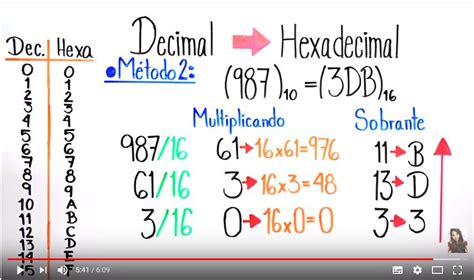 Decimal → Hexadecimal
Dec. Hexa
• Método 2:
(987)₁₀ = (3DB)₁₆
Multiplicando Sobrante
987/16 61→16x61=976 11→B
61/16 3→16x3=48 13→D
3/16 0→16x0=0 3→3
0 0
1 1
2 2
3 3
4 4
5 5
6 6
7 7
8 8
9 9
10 A
11 B
12 C
13 D
14 E
15 F
5:41 / 6:09